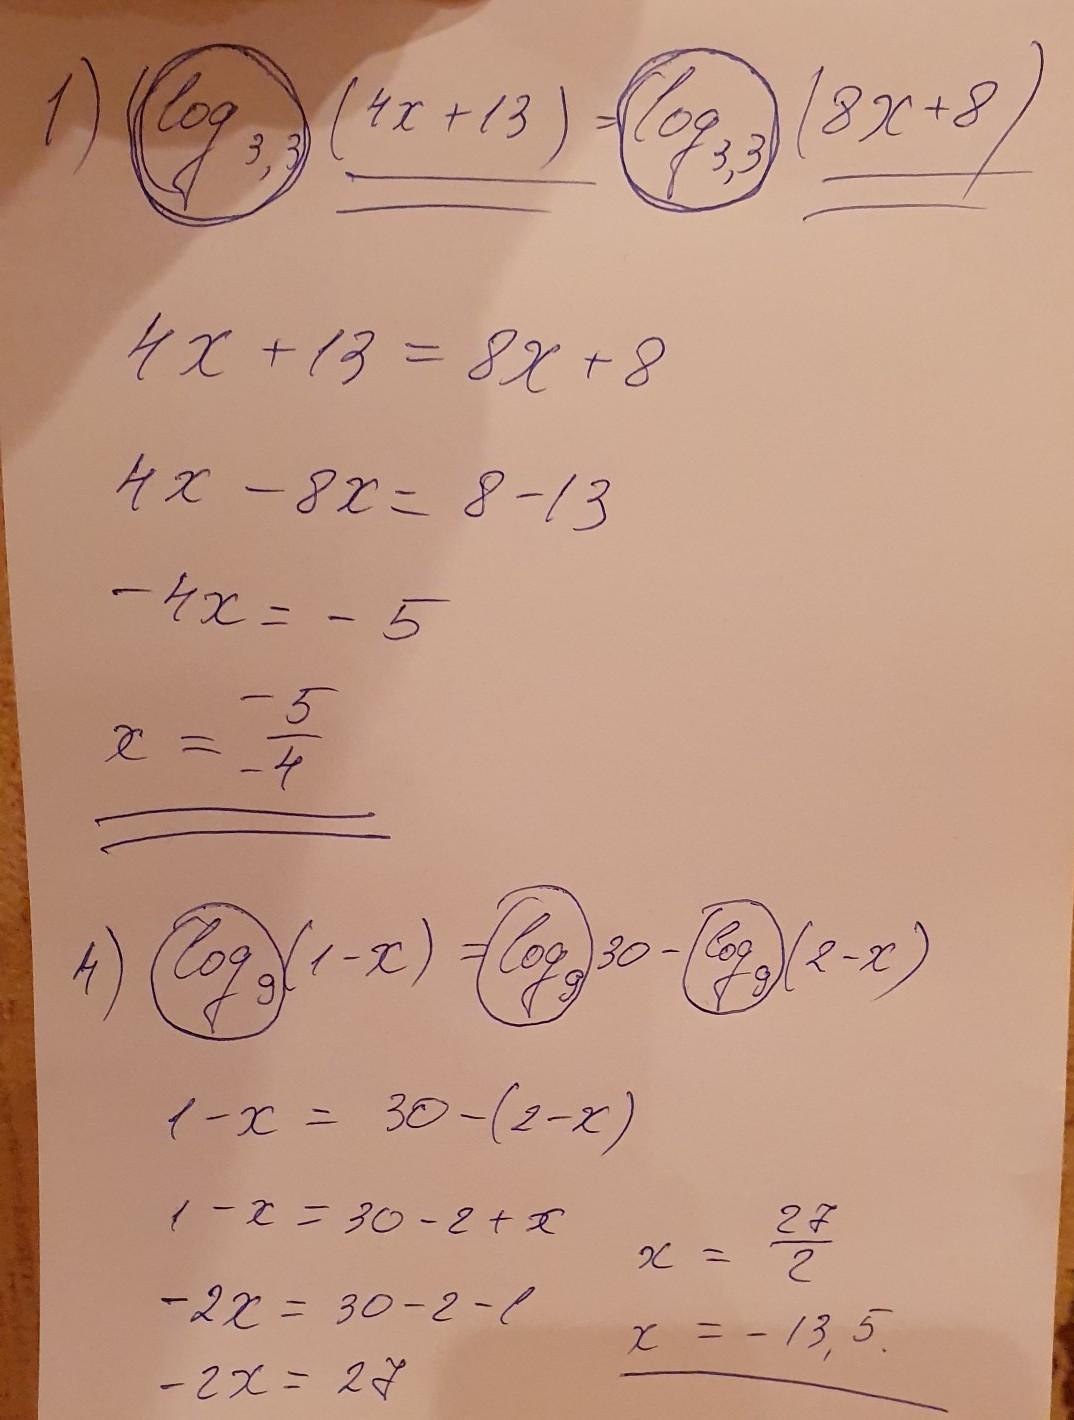 1) log₃,₃ (4x+13) = log₃,₃ (8x+8)
4x + 13 = 8x + 8
4x - 8x = 8 - 13
-4x = -5
x = -5/-4
4) log₉(1-x) = log₉30 - log₉(2-x)
1 - x = 30 - (2 - x)
1 - x = 30 - 2 + x
-2x = 30 - 2 - 1
-2x = 27
x = 27/2
x = -13,5.